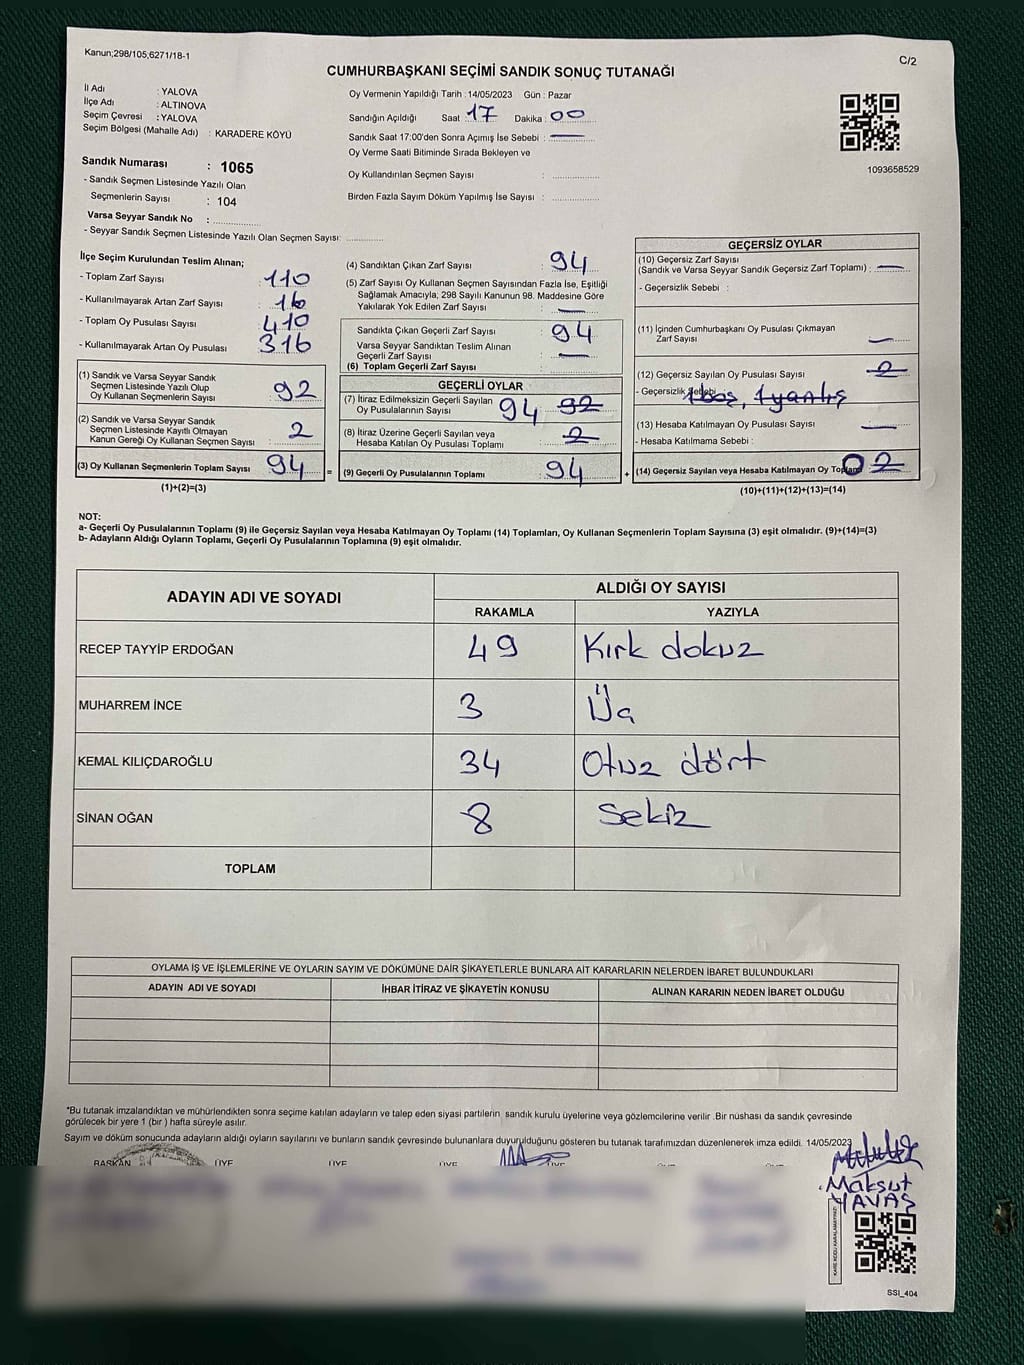 Kanun;298/105,6271/18-1
C/2
CUMHURBAŞKANI SEÇİMİ SANDIK SONUÇ TUTANAĞI
İl Adı : YALOVA
İlçe Adı : ALTINOVA
Seçim Çevresi : YALOVA
Seçim Bölgesi (Mahalle Adı) : KARADERE KÖYÜ
Sandık Numarası : 1065
- Sandık Seçmen Listesinde Yazılı Olan
Seçmenlerin Sayısı : 104
Varsa Seyyar Sandık No : ..............
- Seyyar Sandık Seçmen Listesinde Yazılı Olan Seçmen Sayısı: ............
Oy Vermenin Yapıldığı Tarih : 14/05/2023 Gün : Pazar
Sandığın Açıldığı Saat : 17 Dakika : 00
Sandık Saat 17:00'den Sonra Açımış İse Sebebi : —
Oy Verme Saati Bitiminde Sırada Bekleyen ve
Oy Kullandırılan Seçmen Sayısı : ..............
Birden Fazla Sayım Döküm Yapılmış İse Sayısı : ..............
1093658529
İlçe Seçim Kurulundan Teslim Alınan;
- Toplam Zarf Sayısı : 110
- Kullanılmayarak Artan Zarf Sayısı : 16
- Toplam Oy Pusulası Sayısı : 410
- Kullanılmayarak Artan Oy Pusulası : 316
(1) Sandık ve Varsa Seyyar Sandık
Seçmen Listesinde Yazılı Olup
Oy Kullanan Seçmenlerin Sayısı : 92
(2) Sandık ve Varsa Seyyar Sandık
Seçmen Listesinde Kayıtlı Olmayan
Kanun Gereği Oy Kullanan Seçmen Sayısı : 2
(3) Oy Kullanan Seçmenlerin Toplam Sayısı : 94
(1)+(2)=(3)
(4) Sandıktan Çıkan Zarf Sayısı : 94
(5) Zarf Sayısı Oy Kullanan Seçmen Sayısından Fazla İse, Eşitliği
Sağlamak Amacıyla, 298 Sayılı Kanunun 98. Maddesine Göre
Yakılarak Yok Edilen Zarf Sayısı : —
Sandıkta Çıkan Geçerli Zarf Sayısı : 94
Varsa Seyyar Sandıktan Teslim Alınan
Geçerli Zarf Sayısı : —
(6) Toplam Geçerli Zarf Sayısı :
GEÇERLİ OYLAR
(7) İtiraz Edilmeksizin Geçerli Sayılan
Oy Pusulalarının Sayısı : 94 92
(8) İtiraz Üzerine Geçerli Sayılan veya
Hesaba Katılan Oy Pusulası Toplamı : 2
= (9) Geçerli Oy Pusulalarının Toplamı : 94
GEÇERSİZ OYLAR
(10) Geçersiz Zarf Sayısı
(Sandık ve Varsa Seyyar Sandık Geçersiz Zarf Toplamı) : —
- Geçersizlik Sebebi :
(11) İçinden Cumhurbaşkanı Oy Pusulası Çıkmayan
Zarf Sayısı : —
(12) Geçersiz Sayılan Oy Pusulası Sayısı : 2
- Geçersizlik Sebebi 1 boş, 1 yanlış
(13) Hesaba Katılmayan Oy Pusulası Sayısı : —
- Hesaba Katılmama Sebebi :
+ (14) Geçersiz Sayılan veya Hesaba Katılmayan Oy Toplamı 0 2
(10)+(11)+(12)+(13)=(14)
NOT:
a- Geçerli Oy Pusulalarının Toplamı (9) ile Geçersiz Sayılan veya Hesaba Katılmayan Oy Toplamı (14) Toplamları, Oy Kullanan Seçmenlerin Toplam Sayısına (3) eşit olmalıdır. (9)+(14)=(3)
b- Adayların Aldığı Oyların Toplamı, Geçerli Oy Pusulalarının Toplamına (9) eşit olmalıdır.
ADAYIN ADI VE SOYADI
ALDIĞI OY SAYISI
RAKAMLA YAZIYLA
RECEP TAYYİP ERDOĞAN 49 Kırk dokuz
MUHARREM İNCE 3 Üç
KEMAL KILIÇDAROĞLU 34 Otuz dört
SİNAN OĞAN 8 Sekiz
TOPLAM
OYLAMA İŞ VE İŞLEMLERİNE VE OYLARIN SAYIM VE DÖKÜMÜNE DAİR ŞİKAYETLERLE BUNLARA AİT KARARLARIN NELERDEN İBARET BULUNDUKLARI
ADAYIN ADI VE SOYADI İHBAR İTİRAZ VE ŞİKAYETİN KONUSU ALINAN KARARIN NEDEN İBARET OLDUĞU
*Bu tutanak imzalandıktan ve mühürlendikten sonra seçime katılan adayların ve talep eden siyasi partilerin sandık kurulu üyelerine veya gözlemcilerine verilir .Bir nüshası da sandık çevresinde
görülecek bir yere 1 (bir ) hafta süreyle asılır.
Sayım ve döküm sonucunda adayların aldığı oyların sayılarını ve bunların sandık çevresinde bulunanlara duyurulduğunu gösteren bu tutanak tarafımızdan düzenlenerek imza edildi. 14/05/2023
BAŞKAN ÜYE ÜYE ÜYE ÜYE
Maksut
YAVAŞ
KARE KODU KARALAMAYINIZ!
SSI_404